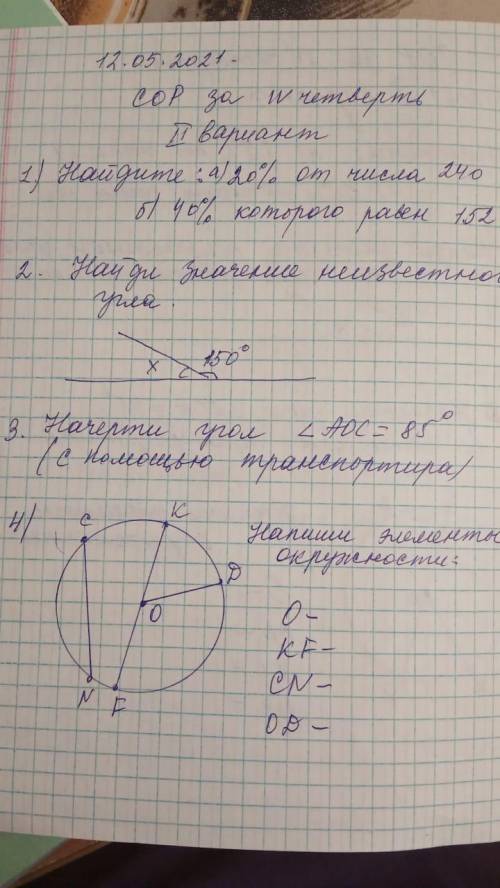 12.05.2021.
СОР за IV четверть
II вариант
1) Найдите: а) 20% от числа 240
б) 40% которого равен 152
2. Найди значение неизвестного
угла.
x 150°
3. Начерти угол ∠AOC = 85°
(с помощью транспортира)
4)
C K
D
O
N F
Напиши элементы
окружности:
O –
KF –
CN –
OD –